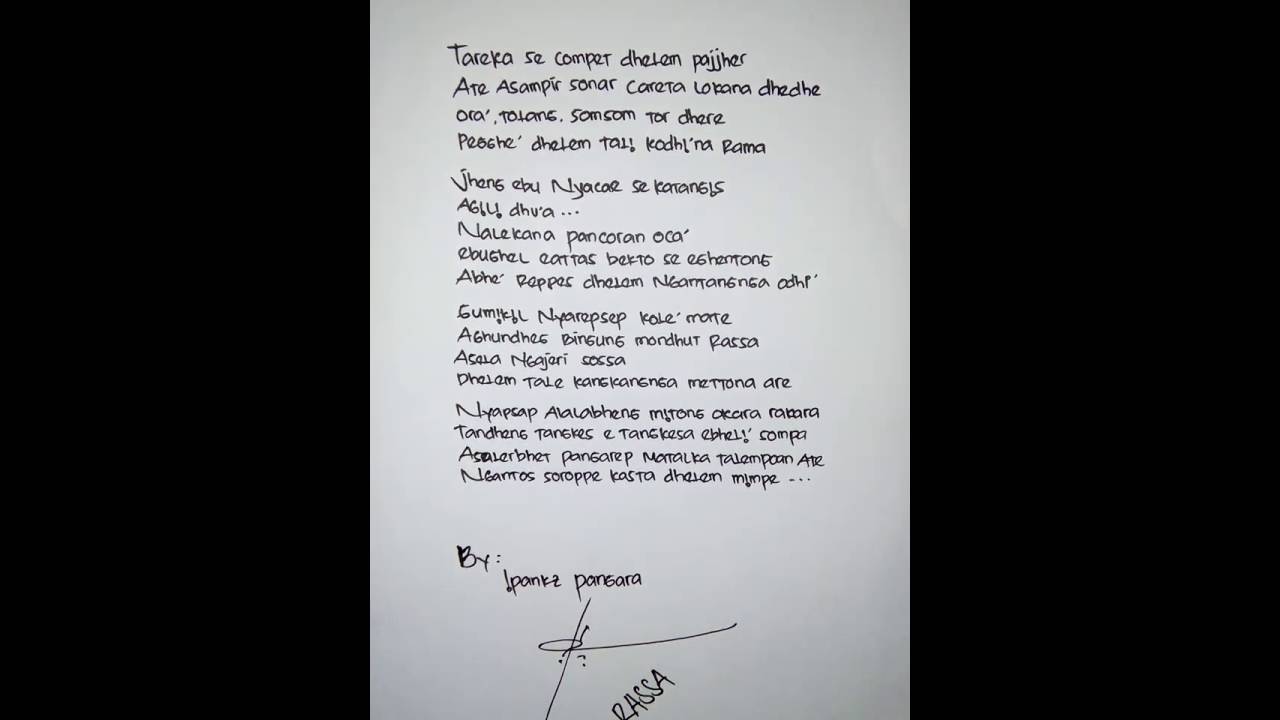 Tareka se compet dhelem pajjher
Ate Asampir sonar Careta lokana dhedhe
ora', totang, somsom tor dhere
Pegghe' dhelem tali kodhi'na Rama
Jheng ebu Nyacae se katangis
Agili dhu'a ...
Nalekana pancoran oca'
ebughel eattas bekto se eghentong
Abhe' Reppes dhelem Ngantangnga odhi'
Gumikil Nyarepsep kole' mate
Aghundheg Bingung mondhut Rassa
Asela Ngajeri sossa
Dhelem tale kangkangnga mettona are
Nyapsap Alalabheng mitong okara rakara
Tandheng tangkes e tangkesa ebheli' sompa
Asalerbhet pangarep Matalka talempoan Ate
Ngantos soroppe kasta dhelem mimpe ...
By:
Ipankz pangara
RASSA